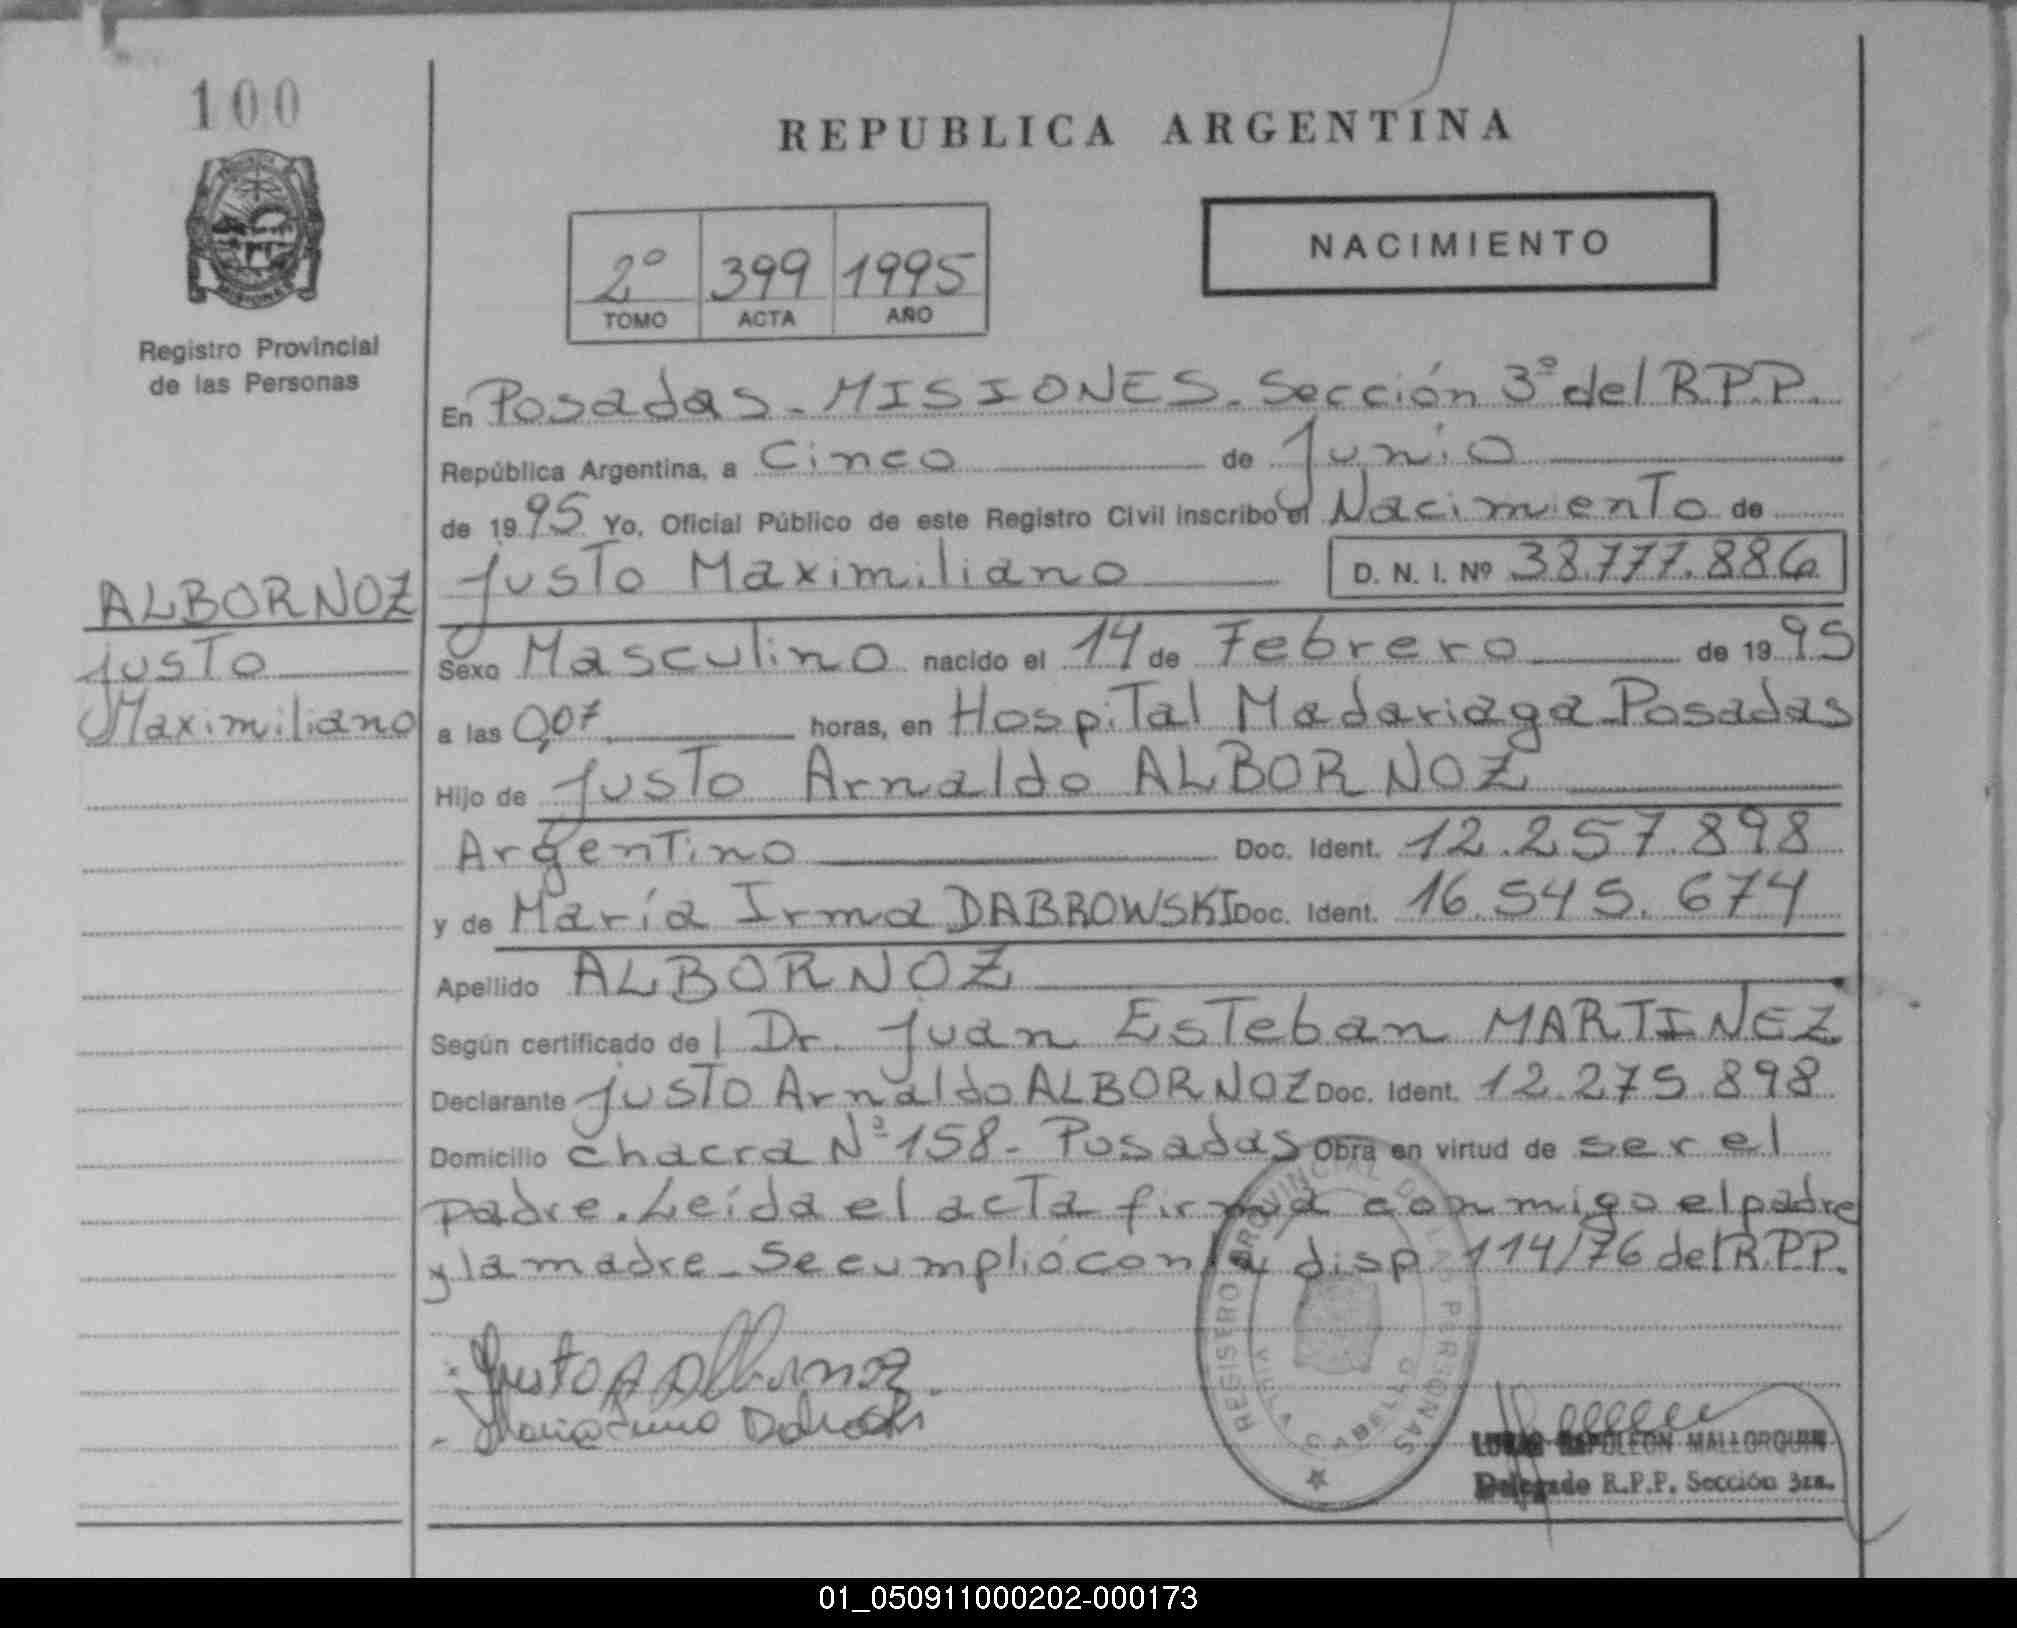 100
REPUBLICA ARGENTINA
NACIMIENTO
2º 399 1995
TOMO ACTA AÑO
MISIONES
Registro Provincial
de las Personas
En Posadas - MISIONES - Sección 3º del R.P.P.
República Argentina, a Cinco de Junio
de 1995 Yo, Oficial Público de este Registro Civil inscribo el Nacimiento de
Justo Maximiliano D. N. I. Nº 38.777.886
ALBORNOZ
Justo
Maximiliano
Sexo Masculino nacido el 14 de Febrero de 1995
a las 0,07 horas, en Hospital Madariaga - Posadas
Hijo de Justo Arnaldo ALBORNOZ
Argentino Doc. Ident. 12.257.898
y de María Irma DABROWSKI Doc. Ident. 16.545.674
Apellido ALBORNOZ
Según certificado del Dr. Juan Esteban MARTINEZ
Declarante Justo Arnaldo ALBORNOZ Doc. Ident. 12.275.898
Domicilio Chacra Nº 158 - Posadas Obra en virtud de ser el
padre. Leída el acta firma conmigo el padre
y la madre - Se cumplió con la disp. 114/76 del R.P.P.
REGISTRO PROVINCIAL DE LAS PERSONAS
VILLA CABELLO
Justo A Albornoz
NAPOLEON MALLORQUIN
Delegado R.P.P. Sección 3ra.
01_050911000202-000173